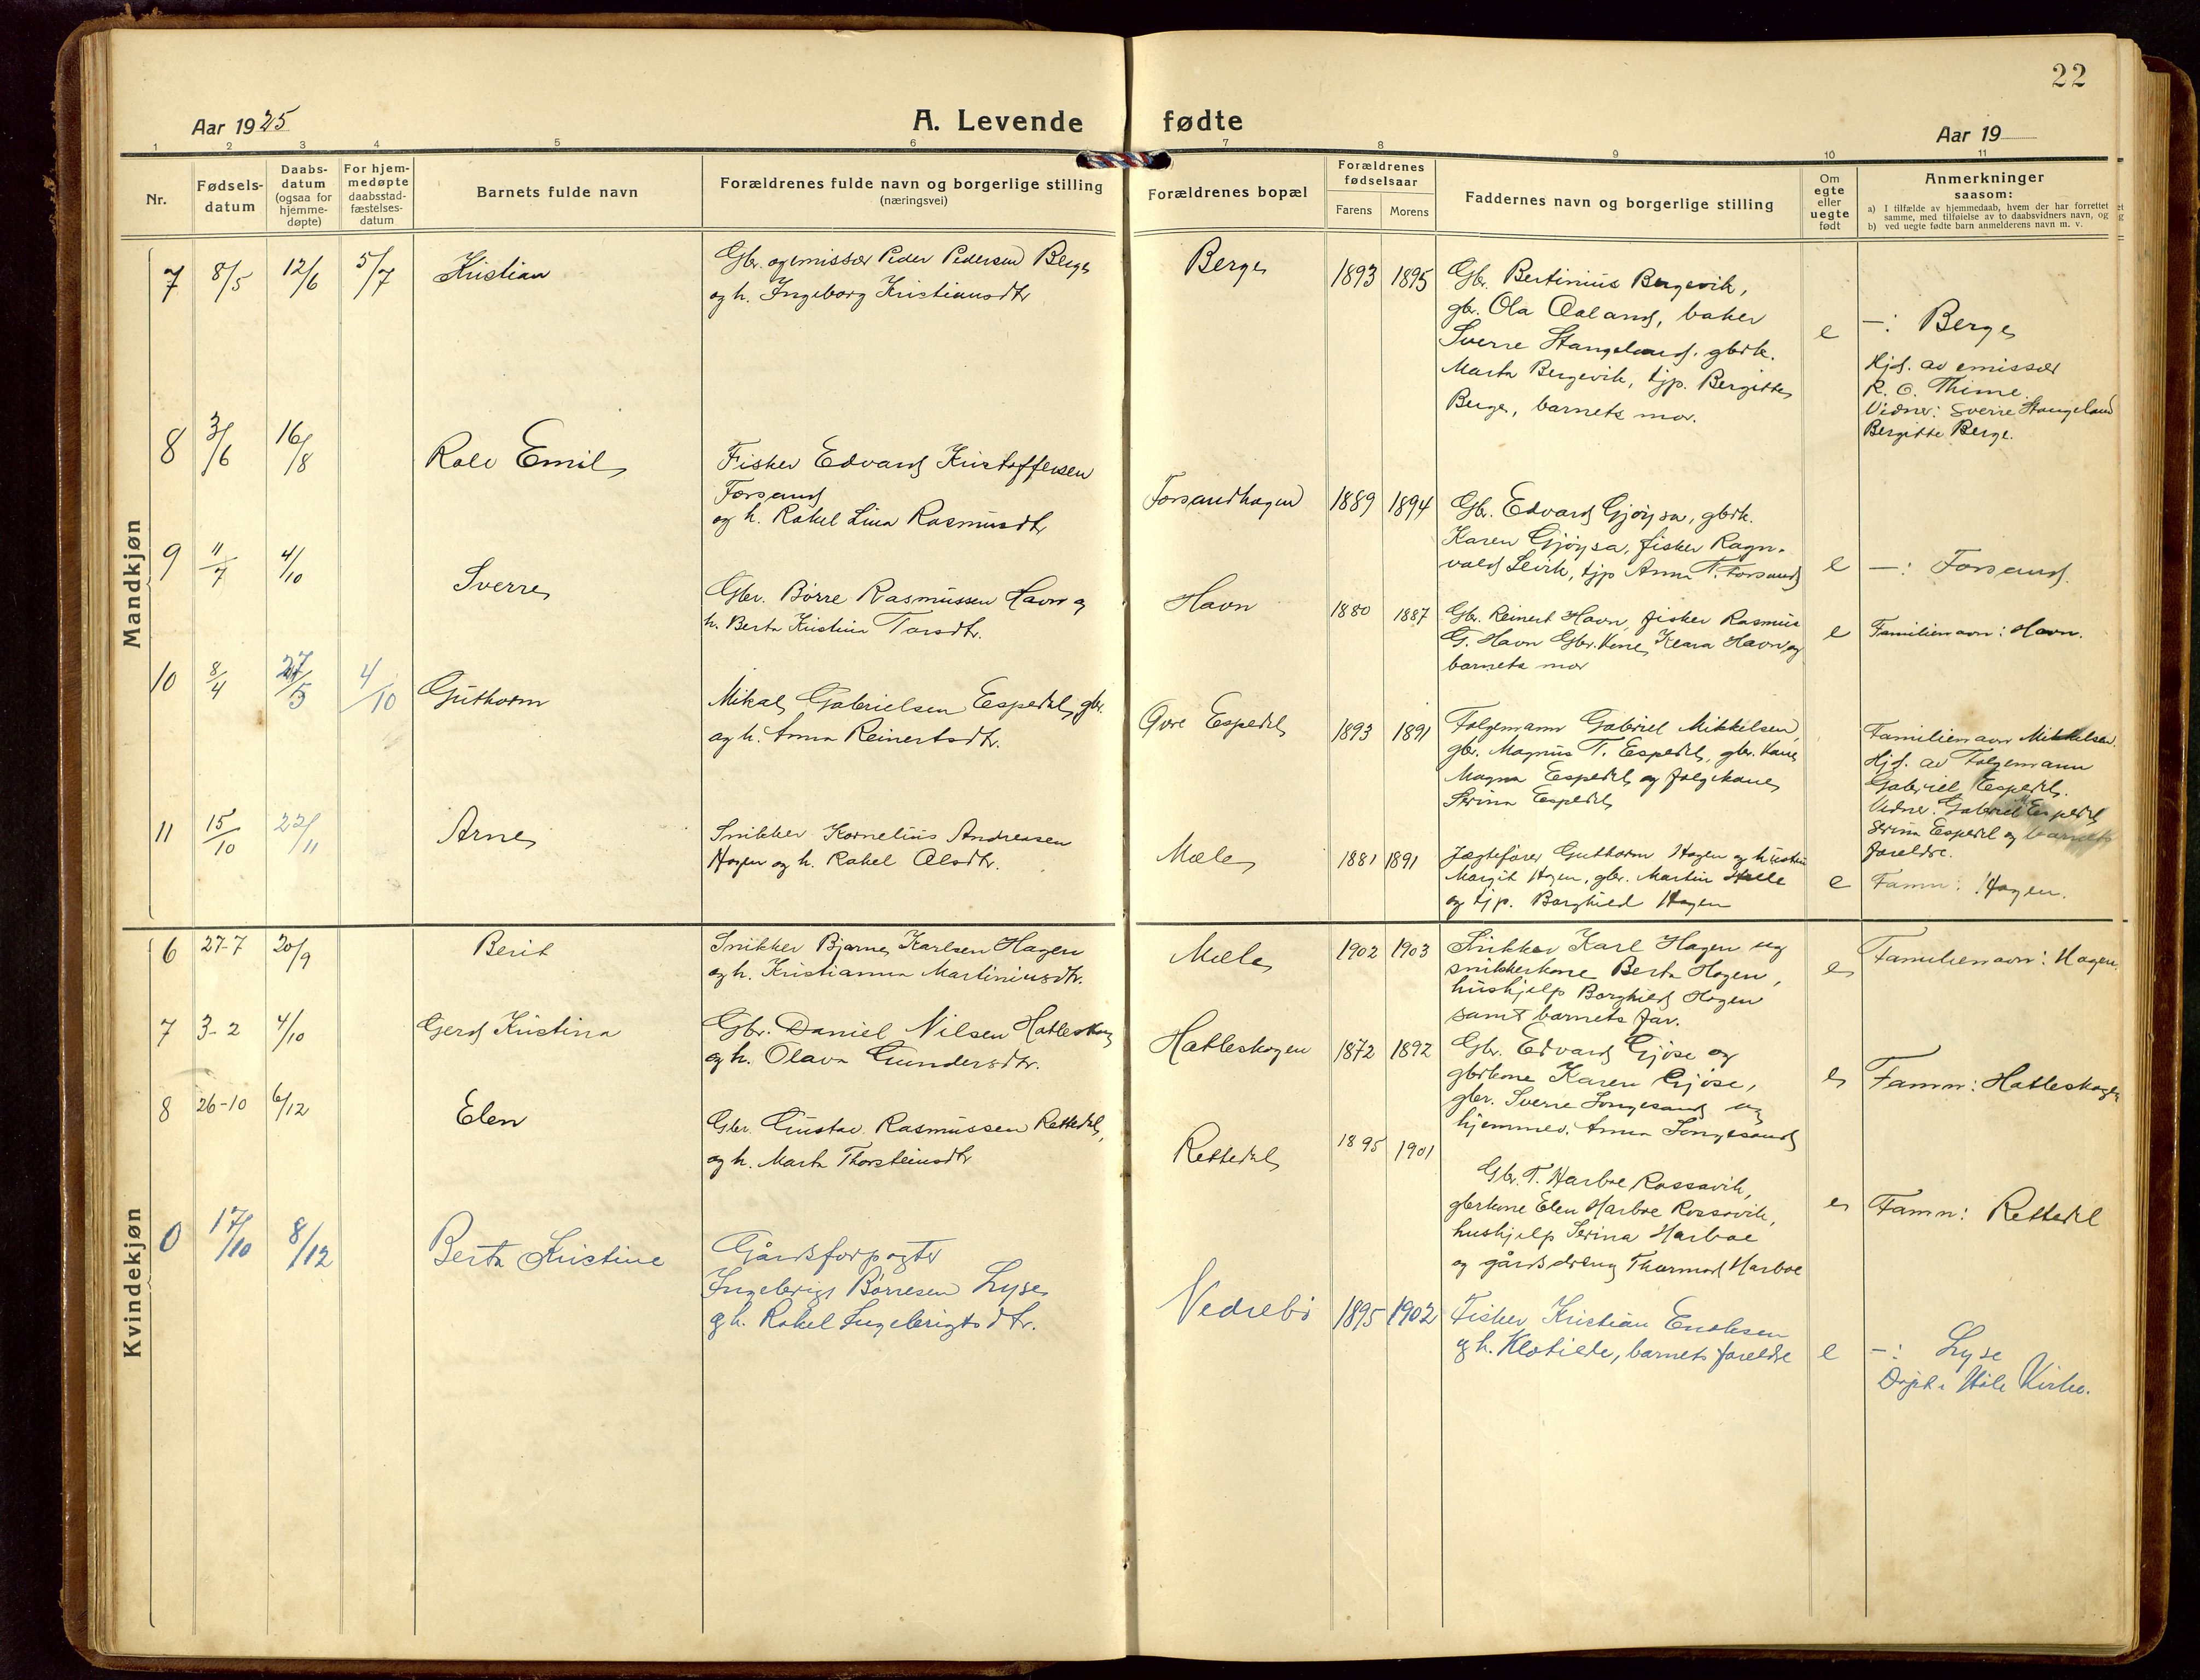 22
Aar 1925
A. Levende fødte
Aar 19
1 2 3 4 5 6 7 8 9 10 11
Nr.
Fødsels-
datum
Daabs-
datum
(ogsaa for
hjemme-
døpte)
For hjem-
medøpte
daabsstad-
fæstelses-
datum
Barnets fulde navn
Forældrenes fulde navn og borgerlige stilling
(næringsvei)
Forældrenes bopæl
Forældrenes
fødselsaar
Farens Morens
Faddernes navn og borgerlige stilling
Om
egte
eller
uegte
født
Anmerkninger
saasom:
a) I tilfælde av hjemmedaab, hvem der har forrettet
samme, med tilføielse av to daabsvidners navn, og
b) ved uegte fødte barn anmelderens navn m. v.
Mandkjøn
7 8/5 12/6 5/7 Kristian
Gbr. og emissær Peder Pedersen Berge
og h. Ingeborg Kristiansdtr
Berge 1893 1895
Gbr. Bertinius Bergevik,
gbr. Ola Aaland, baker
Sverre Stangeland, gbrk.
Marta Bergevik, tjp. Bergitte
Berge, barnets mor.
e
—: Berge
Hjd. av emissær
R. O. Thime.
Vidner: Sverre Stangeland
Bergitte Berge.
8 3/6 16/8 Rolv Emil
Fisker Edvard Kristoffersen
Forsand
og h. Rakel Lina Rasmusdtr
Forsandhagen 1889 1894
Gbr. Edvard Gjøysa, gbrk.
Karen Gjøysa, fisker Ragn-
vald Levik, tjp Anna T. Forsand
e —: Forsand.
9 11/7 4/10 Sverre
Gbr. Børre Rasmussen Havn og
h. Berta Kristina Torsdtr.
Havn 1880 1887
Gbr. Reinert Havn, fisker Rasmus
G. Havn Gbr. kone Klara Havn og
barnets mor
e Familienavn: Havn.
10 8/4 27/5 4/10 Guthorm
Mikal Gabrielsen Espedal, gbr.
og h. Anna Reinertsdtr.
Øvre Espedal 1893 1891
Folgemann Gabriel Mikkelsen,
gbr. Magnus T. Espedal, gbr. kone
Magna Espedal og folgekone
Serina Espedal
Familienavn Mikkelsen.
Hjd. av Folgemann
Gabriel Espedal.
Vidner Gabriel Espedal
Serina Espedal og barnets
foreldre.
11 15/10 22/11 Arne
Snikker Kornelius Andreasen
Hagen og h. Rakel Olsdtr.
Mæle 1881 1891
Jægtefører Guttorm Hagen og hustru
Margit Hagen, gbr. Martin Helle
og tjp. Borghild Hagen
e Famn: Hagen.
Kvindekjøn
6 27-7 20/9 Berit
Snikker Bjarne Karlsen Hagen
og h. Kristianna Martiniusdtr.
Mæle 1902 1903
Snikker Karl Hagen og
snikkerkone Berta Hagen,
hushjelp Borghild Hagen
samt barnets far.
e Familienavn: Hagen.
7 3-2 4/10 Gerd Kristina
Gbr. Daniel Nilsen Hatleskog
og h. Olava Gundersdtr.
Hatleskogen 1872 1892
Gbr. Edvard Gjøse og
gbrkone Karen Gjøse,
gbr. Sverre Songesand og
hjemmev. Anna Songesand
e Famn: Hatleskogen
8 26-10 6/12 Elen
Gbr. Gustav Rasmussen Rettedal,
og h. Marta Thorsteinsdtr
Rettedal 1895 1901
Gbr. T. Harboe Rossavik,
gbrkone Elen Harboe Rossavik,
hushjelp Serina Harboe
og gårdsdreng Thormod Harboe
e Famn: Rettedal
0 17/10 8/12 Berta Kristine
Gårdsforpagter
Ingebrigt Børresen Lyse
og h. Rakel Ingebrigtsdtr.
Vedrebø 1895 1902
Fisker Kristian Enoksen
og h. Klotilde, barnets foreldre
e —: Lyse
Døpt i Høle Kirke.